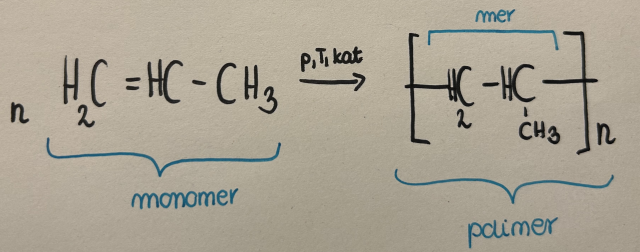 mer
n H₂C=HC-CH₃ p,T,kat → [-H₂C-HC-]n
CH₃
monomer
polimer